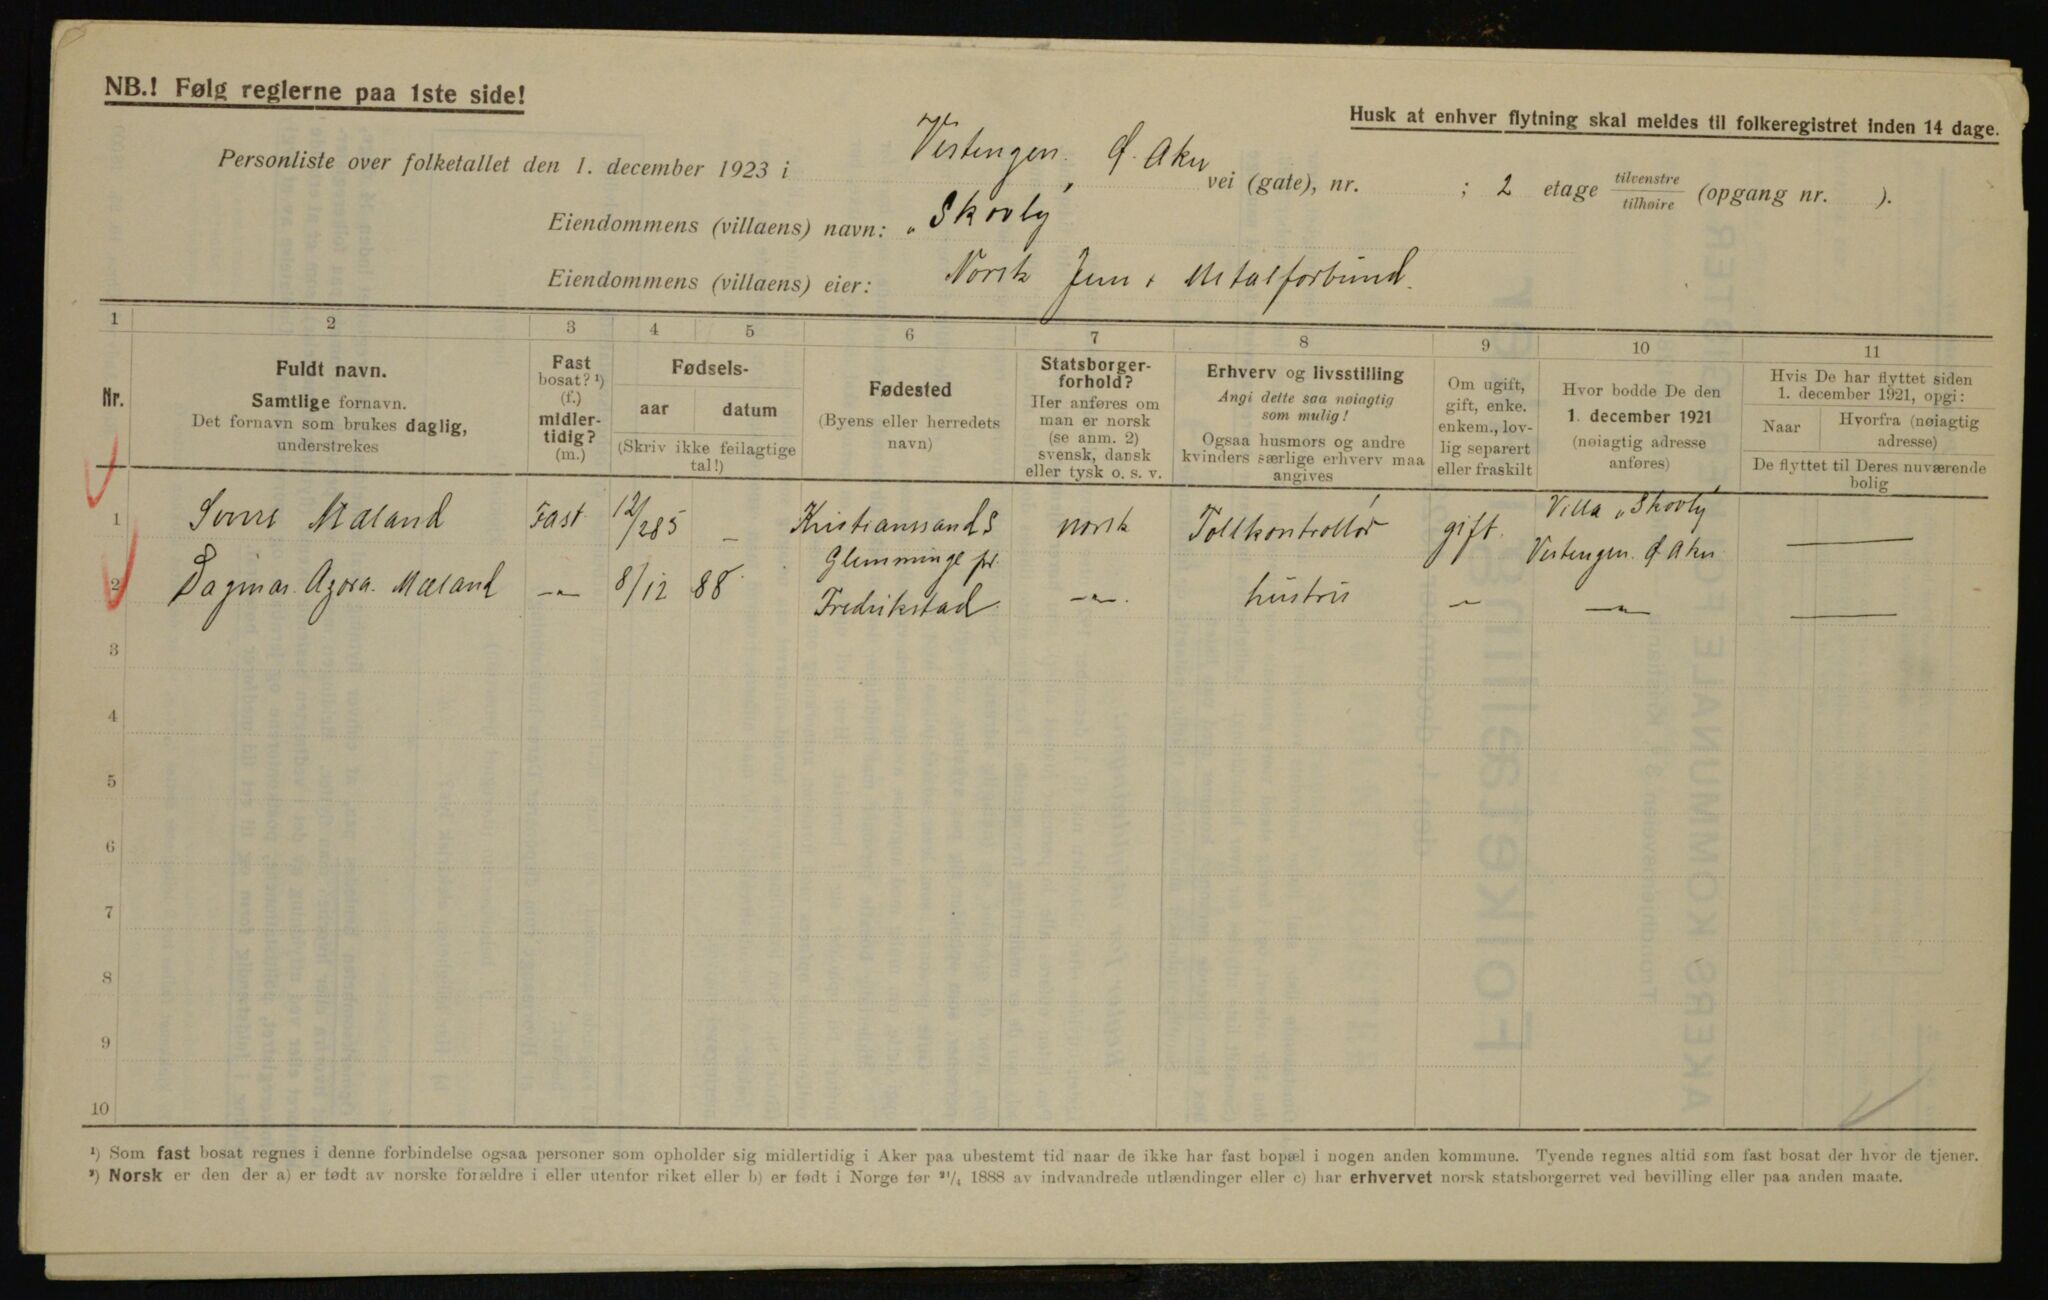 NB.! Følg reglerne paa 1ste side!
Husk at enhver flytning skal meldes til folkeregistret inden 14 dage.
Personliste over folketallet den 1. december 1923 i Vestengen. Ø. Aker vei (gate), nr. ; 2 etage tilvenstre tilhøire (opgang nr. ).
Eiendommens (villaens) navn: „Skovly"
Eiendommens (villaens) eier: Norsk Jern & Metalforbund.
1 2 3 4 5 6 7 8 9 10 11
Nr.
Fuldt navn.
Samtlige fornavn.
Det fornavn som brukes daglig,
understrekes
Fast
bosat? ¹)
(f.)
midler-
tidig?
(m.)
Fødsels-
aar datum
(Skriv ikke feilagtige
tal!)
Fødested
(Byens eller herredets
navn)
Statsborger-
forhold?
Her anføres om
man er norsk
(se anm. 2)
svensk, dansk
eller tysk o. s. v.
Erhverv og livsstilling
Angi dette saa nøiagtig
som mulig!
Ogsaa husmors og andre
kvinders særlige erhverv maa
angives
Om ugift,
gift, enke.
enkem., lov-
lig separert
eller fraskilt
Hvor bodde De den
1. december 1921
(nøiagtig adresse
anføres)
Hvis De har flyttet siden
1. december 1921, opgi:
Naar Hvorfra (nøiagtig
adresse)
De flyttet til Deres nuværende
bolig
1 Mæland Fast 12/2 85 – Kristianssand S norsk Tollkontrollør gift. Villa „Skovly" Vestengen. Ø Aker —
2 Dagmar Agora Mæland —"— 8/12 88 Glemminge pr. Fredrikstad —"—. hustru —"— —"— —
3
4
5
6
7
8
9
10
¹) Som fast bosat regnes i denne forbindelse ogsaa personer som opholder sig midlertidig i Aker paa ubestemt tid naar de ikke har fast bopæl i nogen anden kommune. Tyende regnes altid som fast bosat der hvor de tjener.
²) Norsk er den der a) er født av norske forældre i eller utenfor riket eller b) er født i Norge før ²¹/₄ 1888 av indvandrede utlændinger eller c) har erhvervet norsk statsborgerret ved bevilling eller paa anden maate.